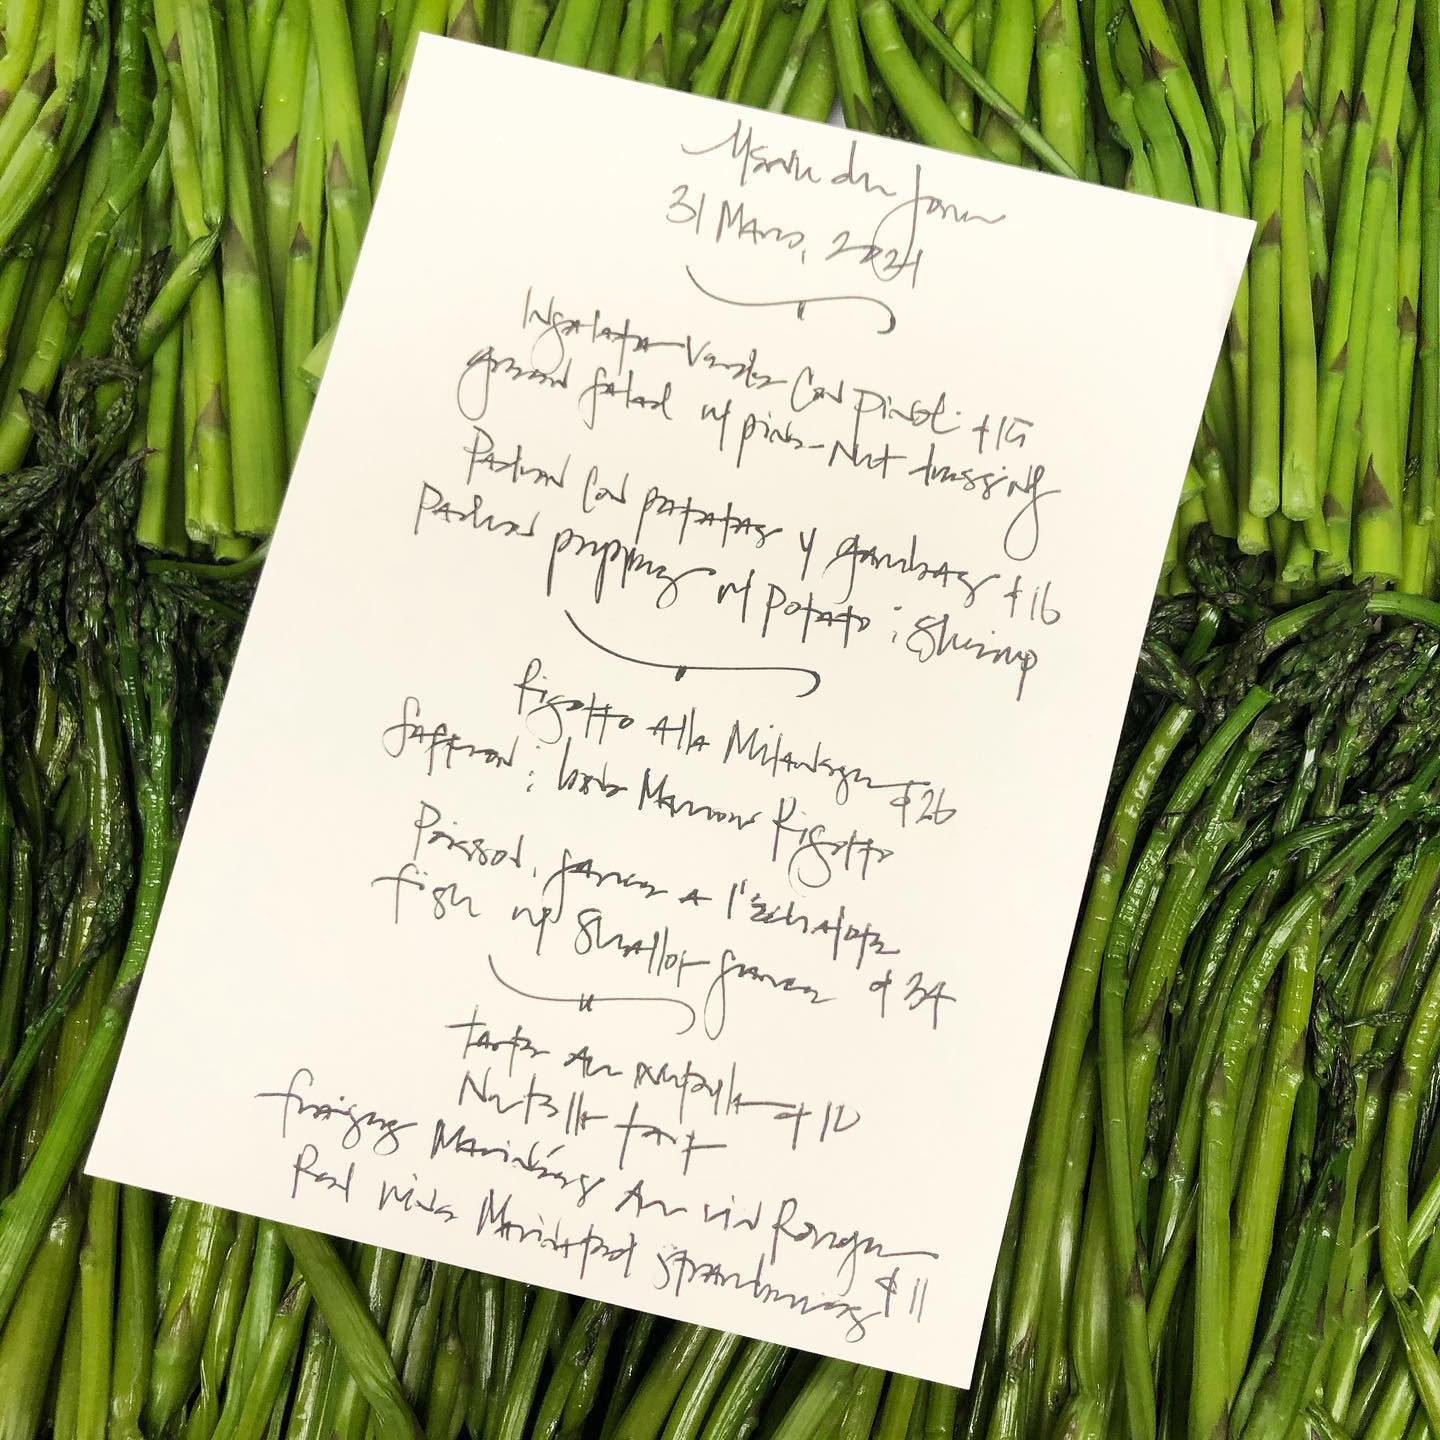 Menu du Jour
31 Mars, 2021
Insalata Verde Con Pinoli $15
green salad w/ pine-Nut dressing
Padron Con patatas y gambas $16
Padron peppers w/ potato & shrimp
Risotto Alla Milanese $26
Saffron & bone Marrow Risotto
Poisson, sauce a l'échalote
fish w/ shallot sauce $34
tarte Au nutella $12
Nutella tart
fraises Marinées Au vin Rouge
Red wine Marinated strawberries $11